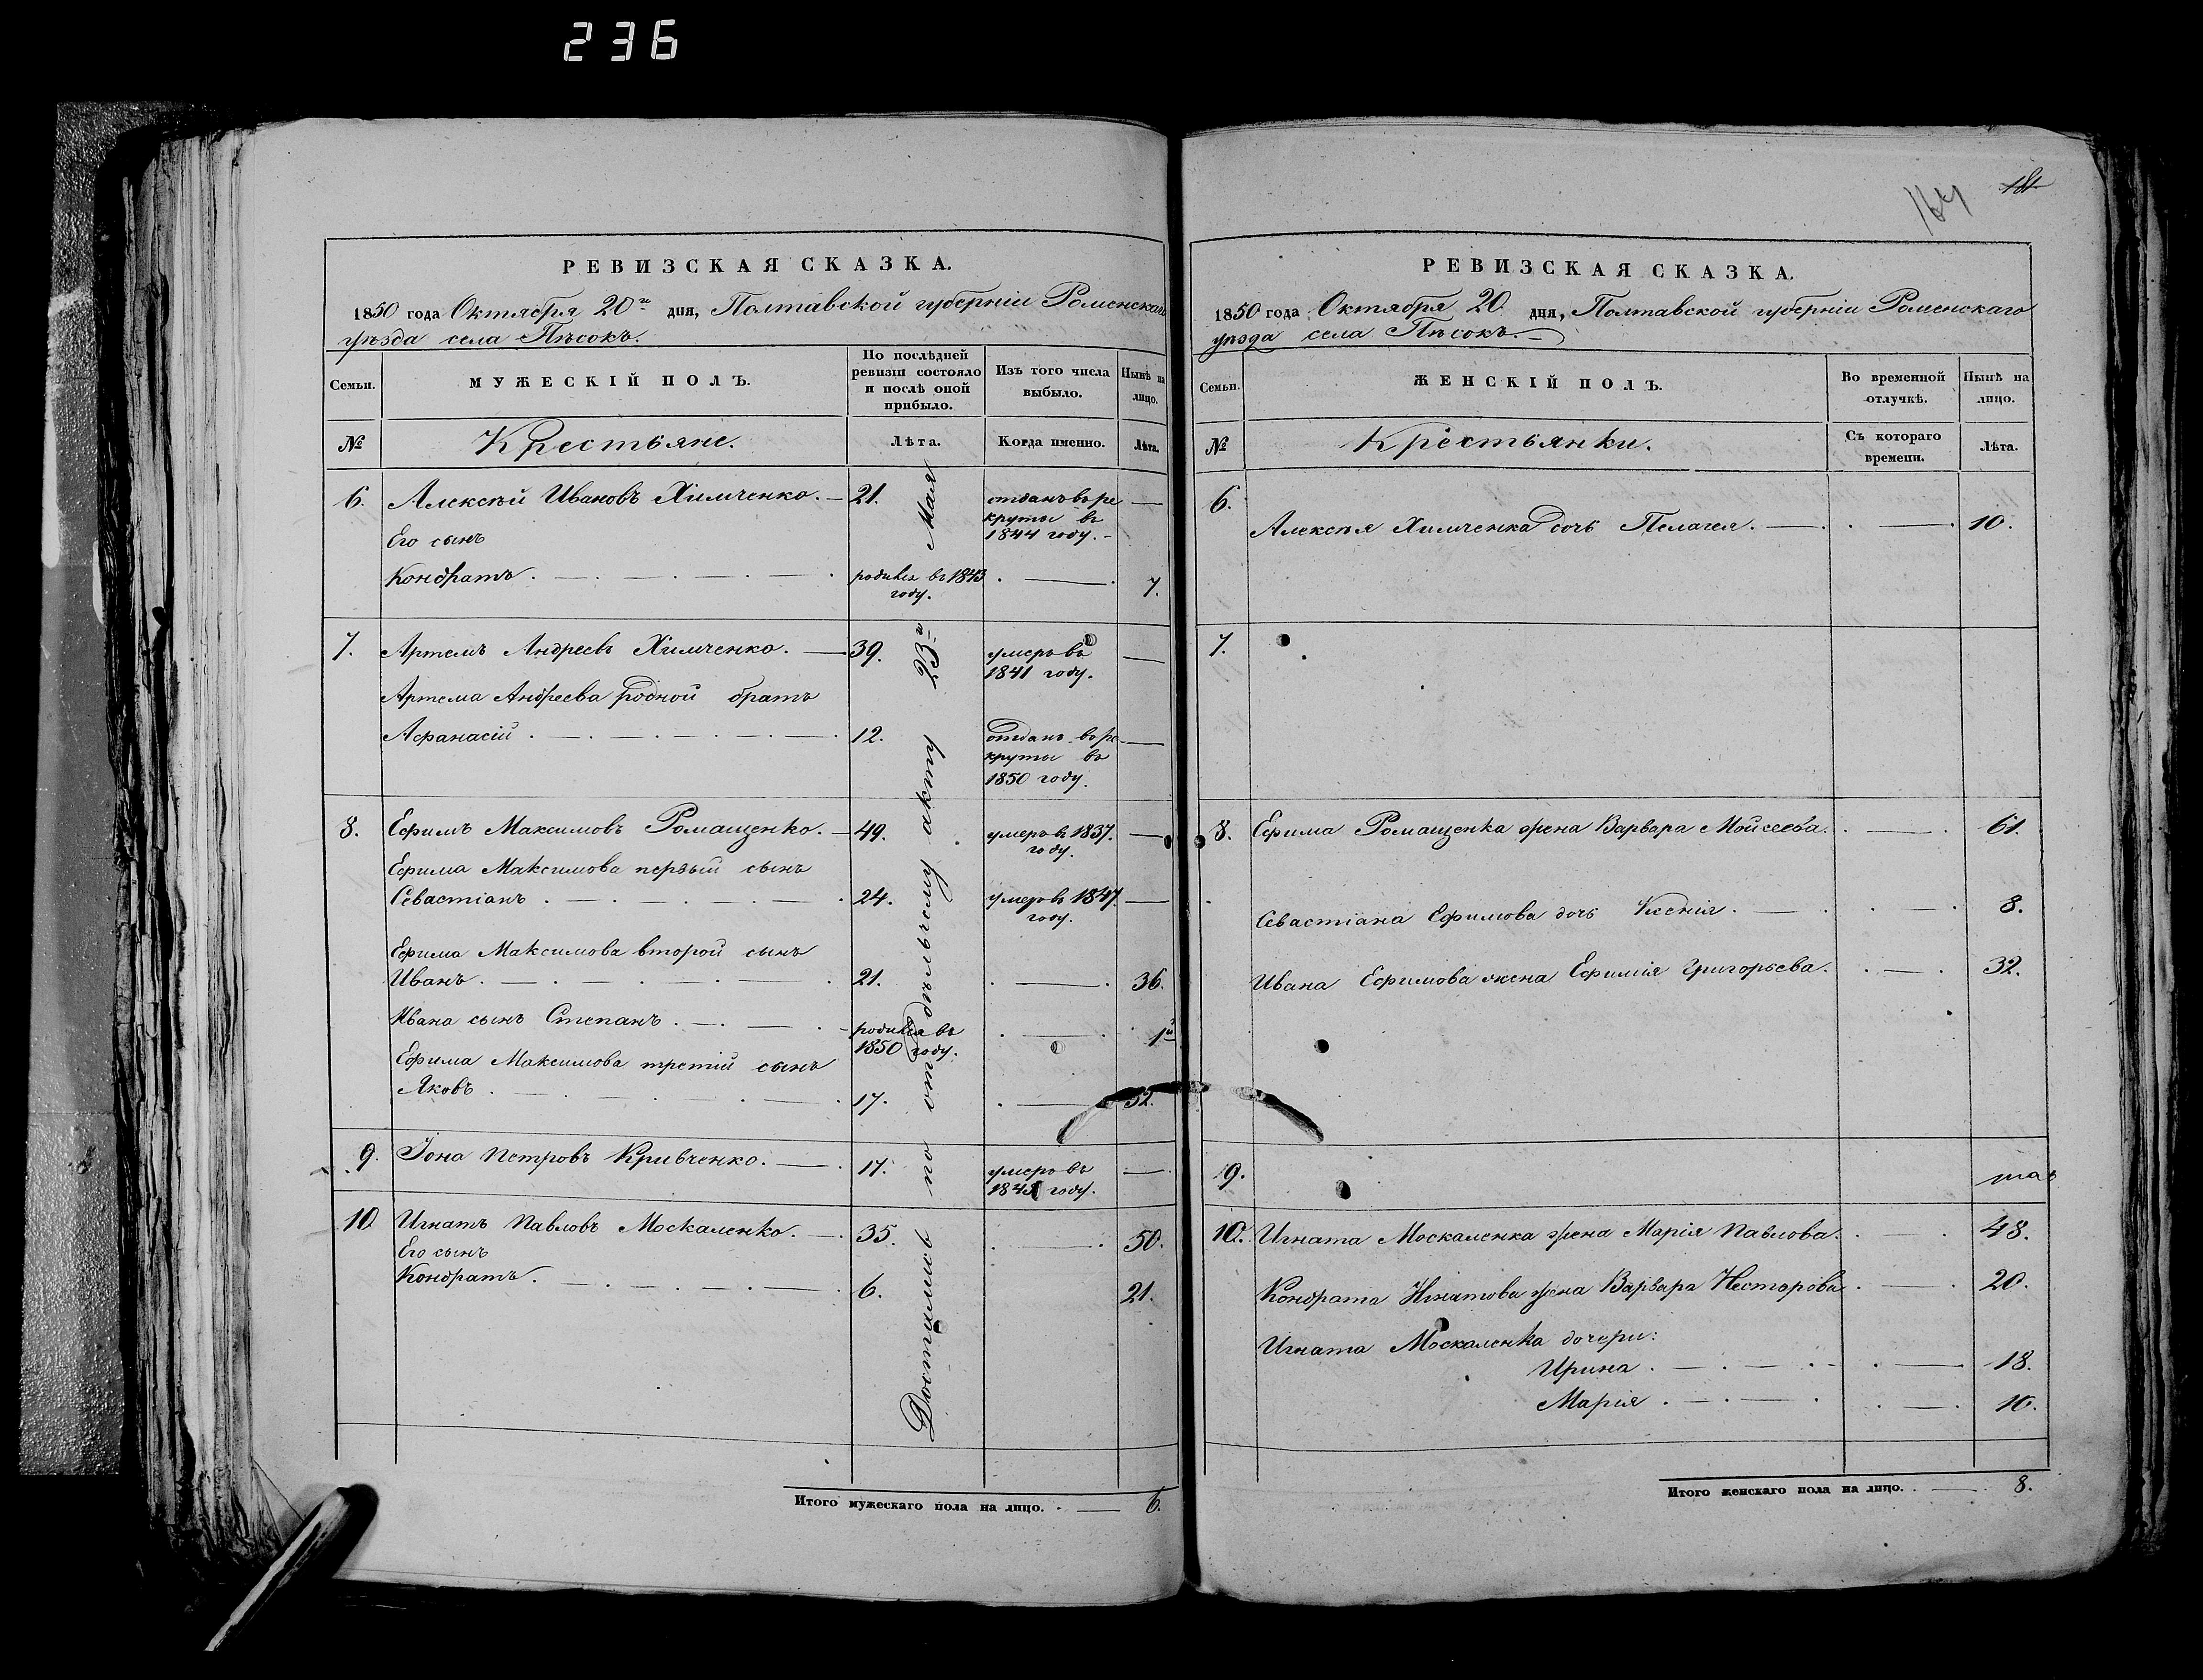 236
РЕВИЗСКАЯ СКАЗКА.
1850 года Октября 20го дня, Полтавской губерніи Роменскаго
уѣзда села Пѣсокъ.
Семьи.
МУЖЕСКІЙ ПОЛЪ.
По послѣдней
ревизіи состояло
и послѣ оной
прибыло.
Изъ того числа
выбыло.
Нынѣ на
лицо.
№
Крестьяне.
Лѣта.
Когда именно.
Лѣта.
6. Алексѣй Ивановъ Химченко. — 21. отданъ въ ре —
круты въ
1844 году. -
Его сынъ
Кондратъ . — . — . — . родился въ 1843 . — . 7.
году.
7. Артемъ Андреевъ Химченко. — 39. умеръ въ —
1841 году.
Артема Андреева родной братъ
Афанасій . — . — . — . 12. отданъ въ ре- —
круты въ
1850 году.
8. Ефимъ Максимовъ Ромащенко. — 49. умеръ въ 1837. —
году.
Ефима Максимова первый сынъ
Севастіанъ . — . — . — . 24. умеръ въ 1847. —
году.
Ефима Максимова второй сынъ
Иванъ . — . — . — . 21. . — . 36.
Ивана сынъ Степанъ . — . — . родился въ . — . 1й
1850 году.
Ефима Максимова третій сынъ
Яковъ . — . — . — . 17. . — 32.
9. Іона Петровъ Кривченко. — . 17. умеръ въ —
184 году.
10 Игнатъ Павловъ Москаленко. — . 35. . — . 50.
Его сынъ
Кондратъ . — . — . — . 6. 21.
Достигшимъ по отдѣльному акту 23го Мая
Итого мужескаго пола на лицо. . — 6.
164 181
РЕВИЗСКАЯ СКАЗКА.
1850 года Октября 20 дня, Полтавской губерніи Роменскаго
уѣзда села Пѣсокъ. —
Семьи.
ЖЕНСКІЙ ПОЛЪ.
Во временной
отлучкѣ.
Нынѣ на
лицо.
№
Крестьянки.
Съ котораго
времени.
Лѣта.
6.
Алексѣя Химченка дочь Пелагея. — . . — . 10.
7.
8. Ефима Ромащенка жена Варвара Мойсеева. . — . 61.
Севастіана Ефимова дочь Ксенія . — . . — . 8.
Ивана Ефимова жена Ефимія Григорьева. . — . 32.
9.
10. Игната Москаленка жена Марія Павлова. . — . 48.
Кондрата Игнатова жена Варвара Несторова . — . 20.
Игната Москаленка дочери:
Ирина . — . — . . — . 18.
Марія . — . — . . — . 10.
Итого женскаго пола на лицо. . — . 8.